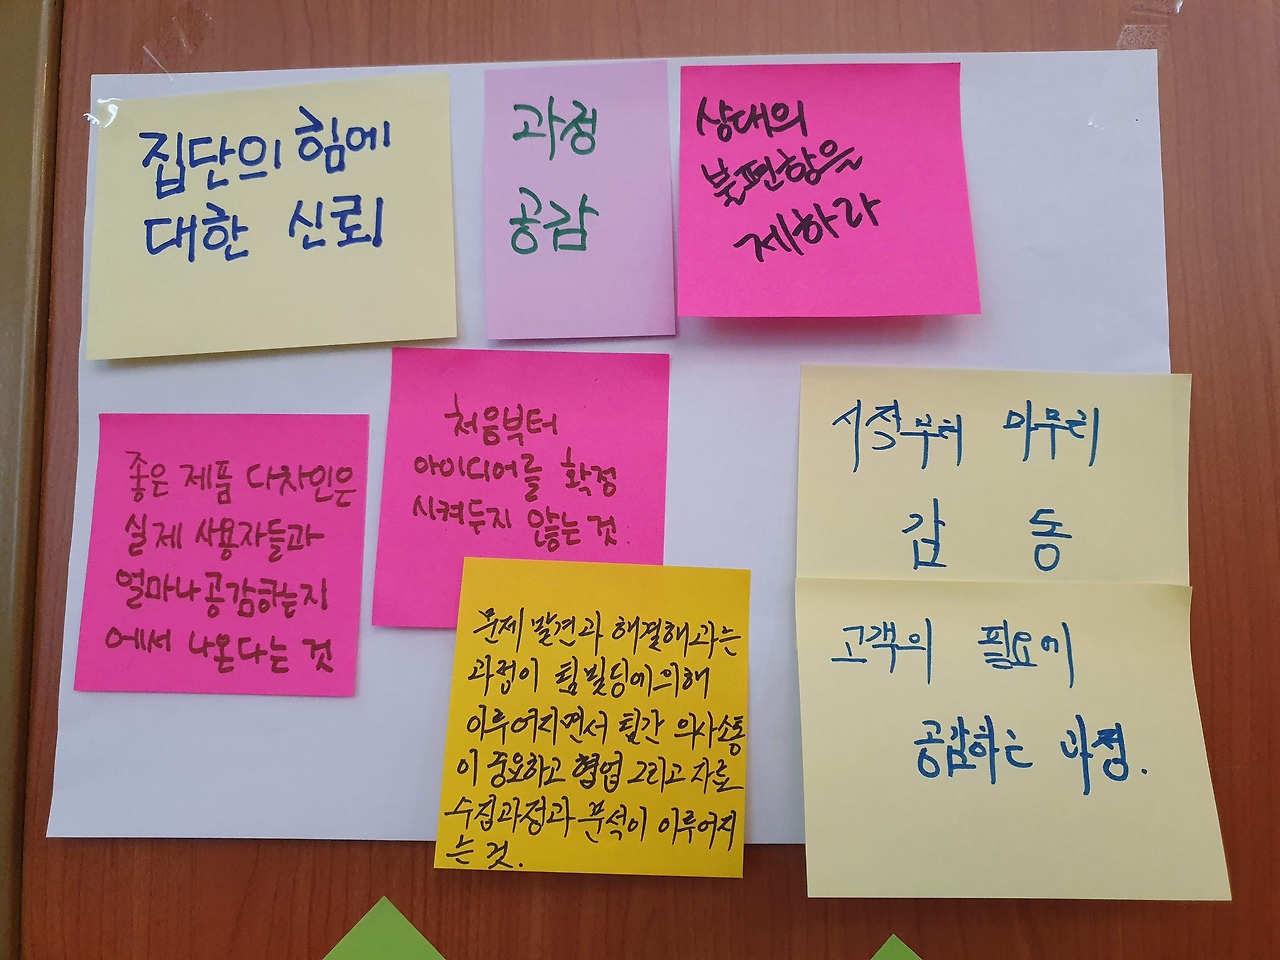 집단의 힘에
대한 신뢰
과정
공감
상대의
불편함을
제하라
좋은 제품 디자인은
실제 사용자들과
얼마나 공감하는지
에서 나온다는 것
처음부터
아이디어를 확정
시켜두지 않는 것.
문제 발견과 해결해과는
과정이 팀빌딩에 의해
이루어지면서 팀간 의사소통
이 중요하고 협업 그리고 자료
수집과정과 분석이 이루어지
는 것.
시작부터 마무리
감 동
고객의 필요에
공감하는 과정.